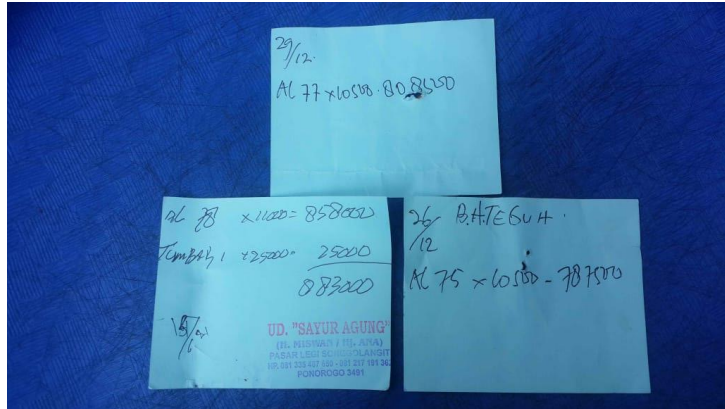 29/12.
AC 77 x 10500. 808500
AC 78 x 11000 = 858000
TOMBAK 1 x 25000 = 25000
883000
UD. "SAYUR AGUNG"
(H. MISWAN / Hj. ANA)
PASAR LEGI SONGGOLANGIT
PONOROGO 3491
26/12 B.H.TEGUH.
AC 75 x 10500 - 787500